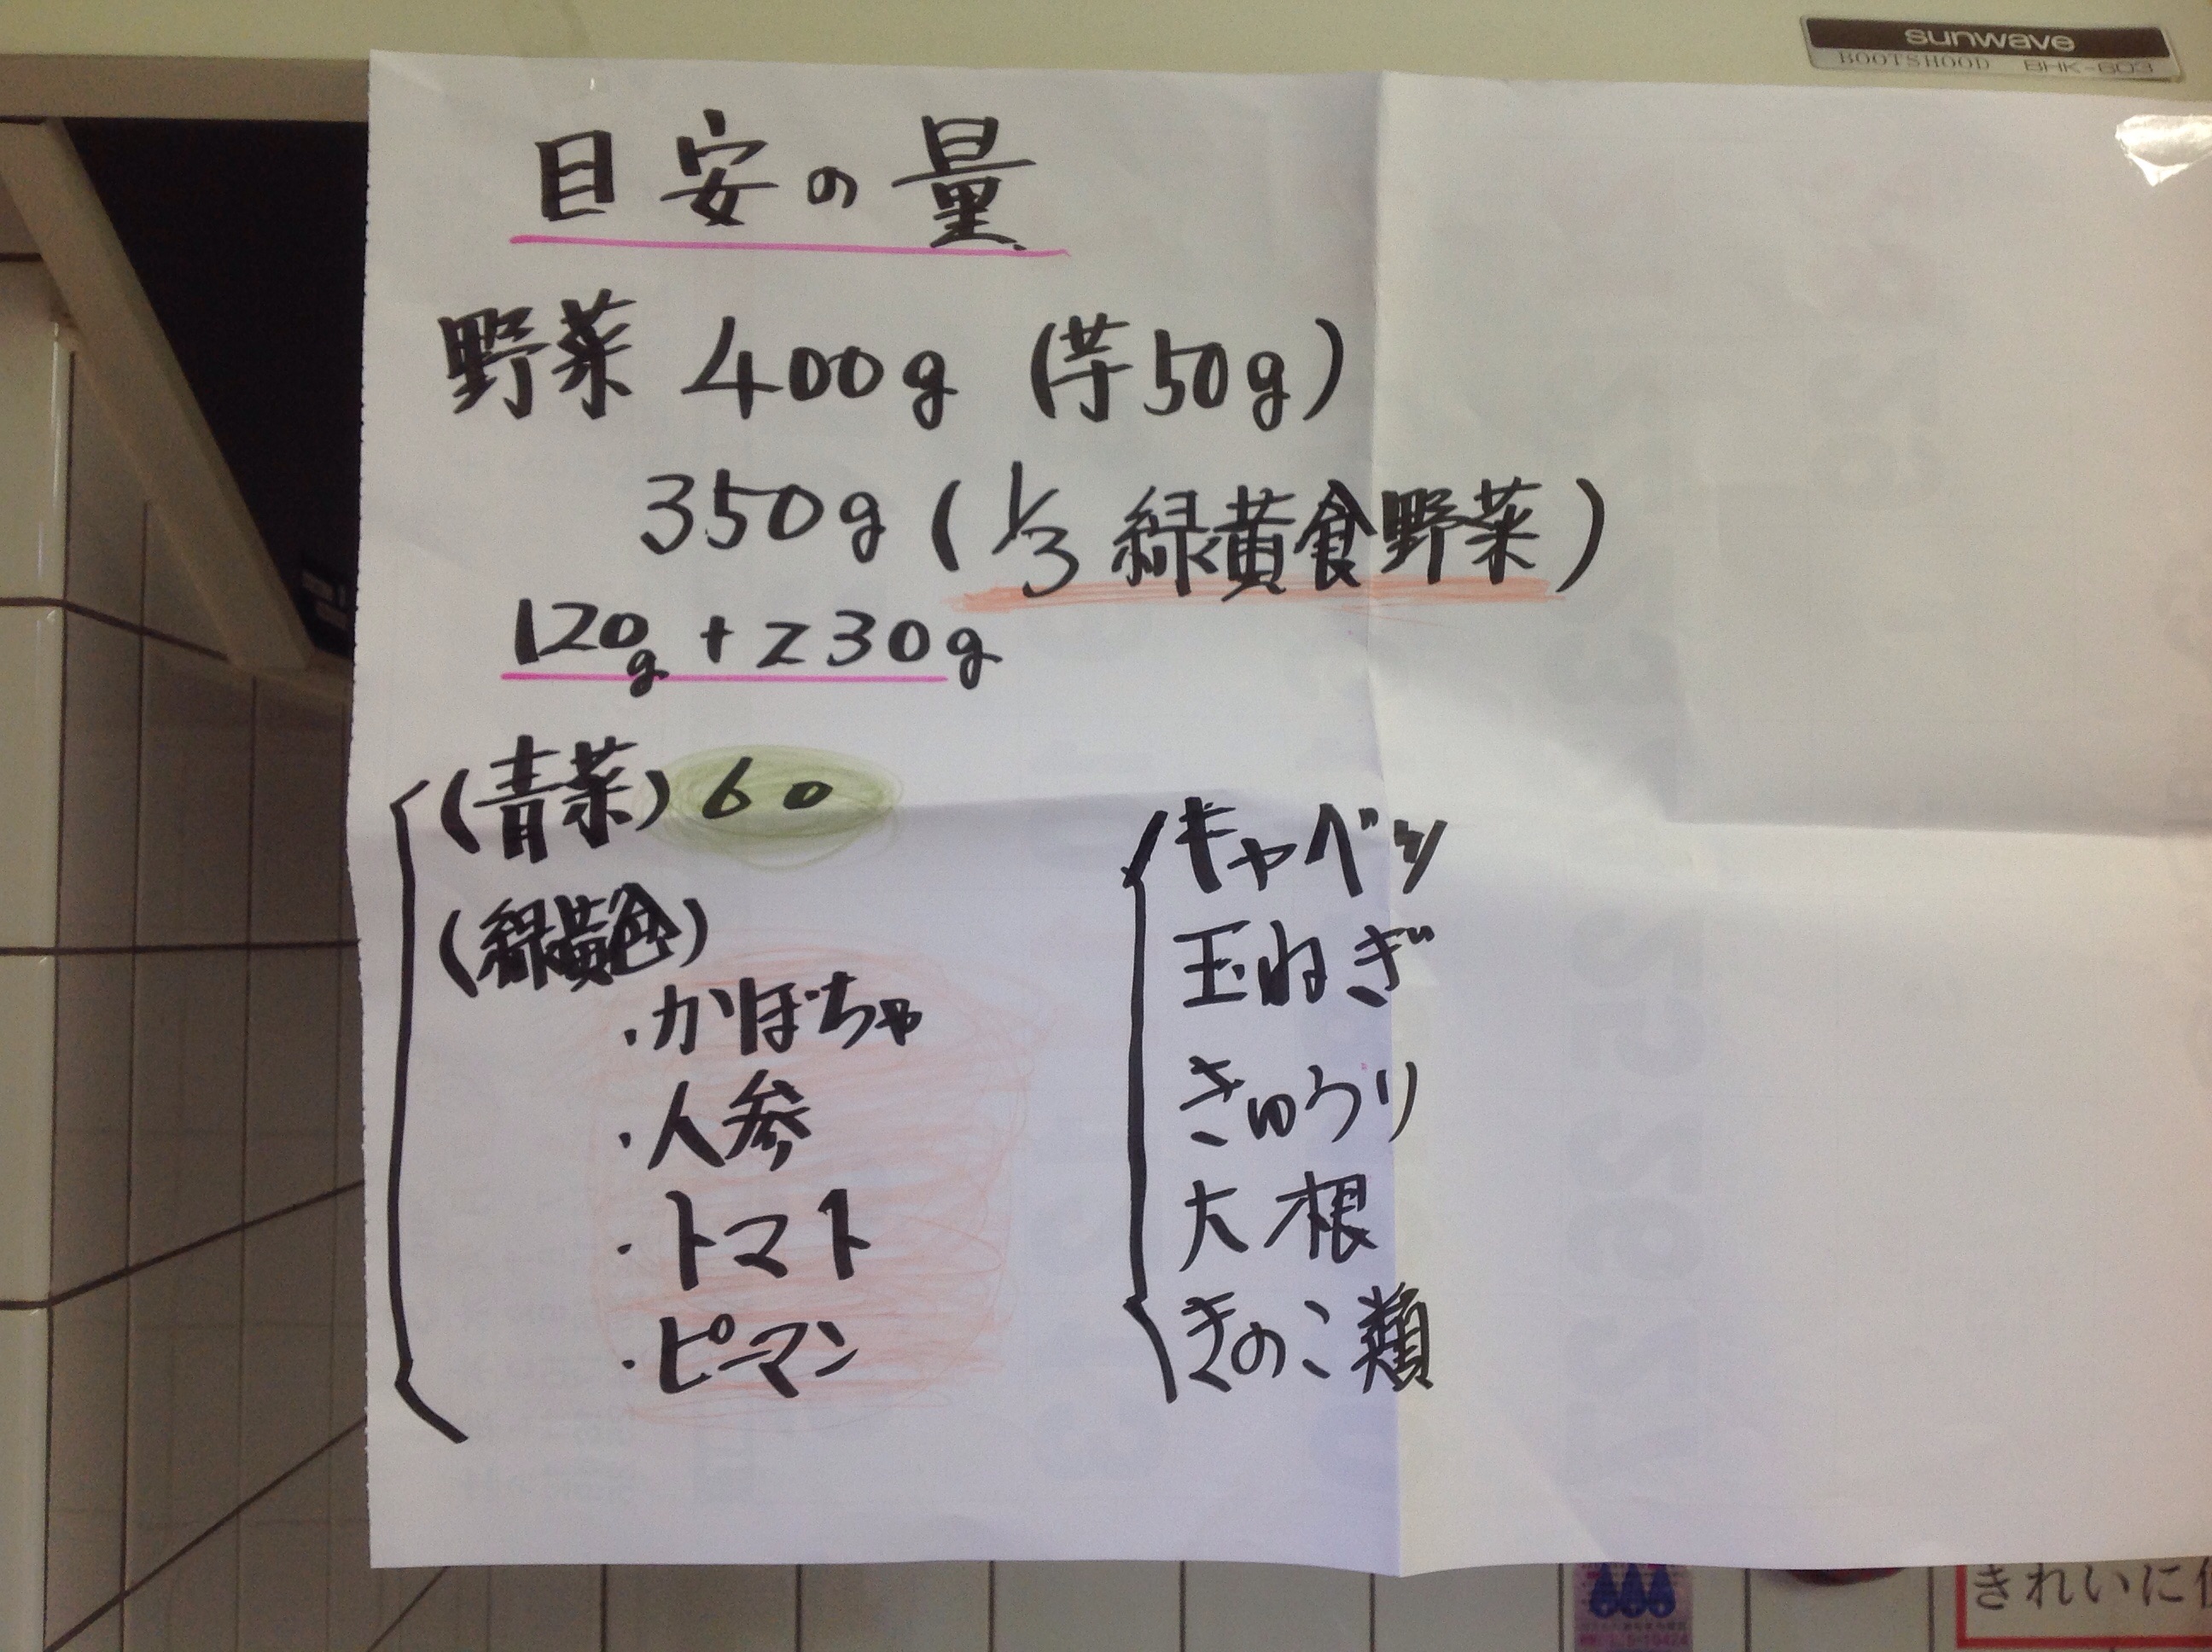 sunwave
BOOTSHOOD BHK-603
目安の量
野菜 400g (芋50g)
350g (1/3 緑黄食野菜)
120g + 230g
(青菜) 60
(緑黄色)
・かぼちゃ
・人参
・トマト
・ピーマン
キャベツ
玉ねぎ
きゅうり
大根
きのこ類
きれいに